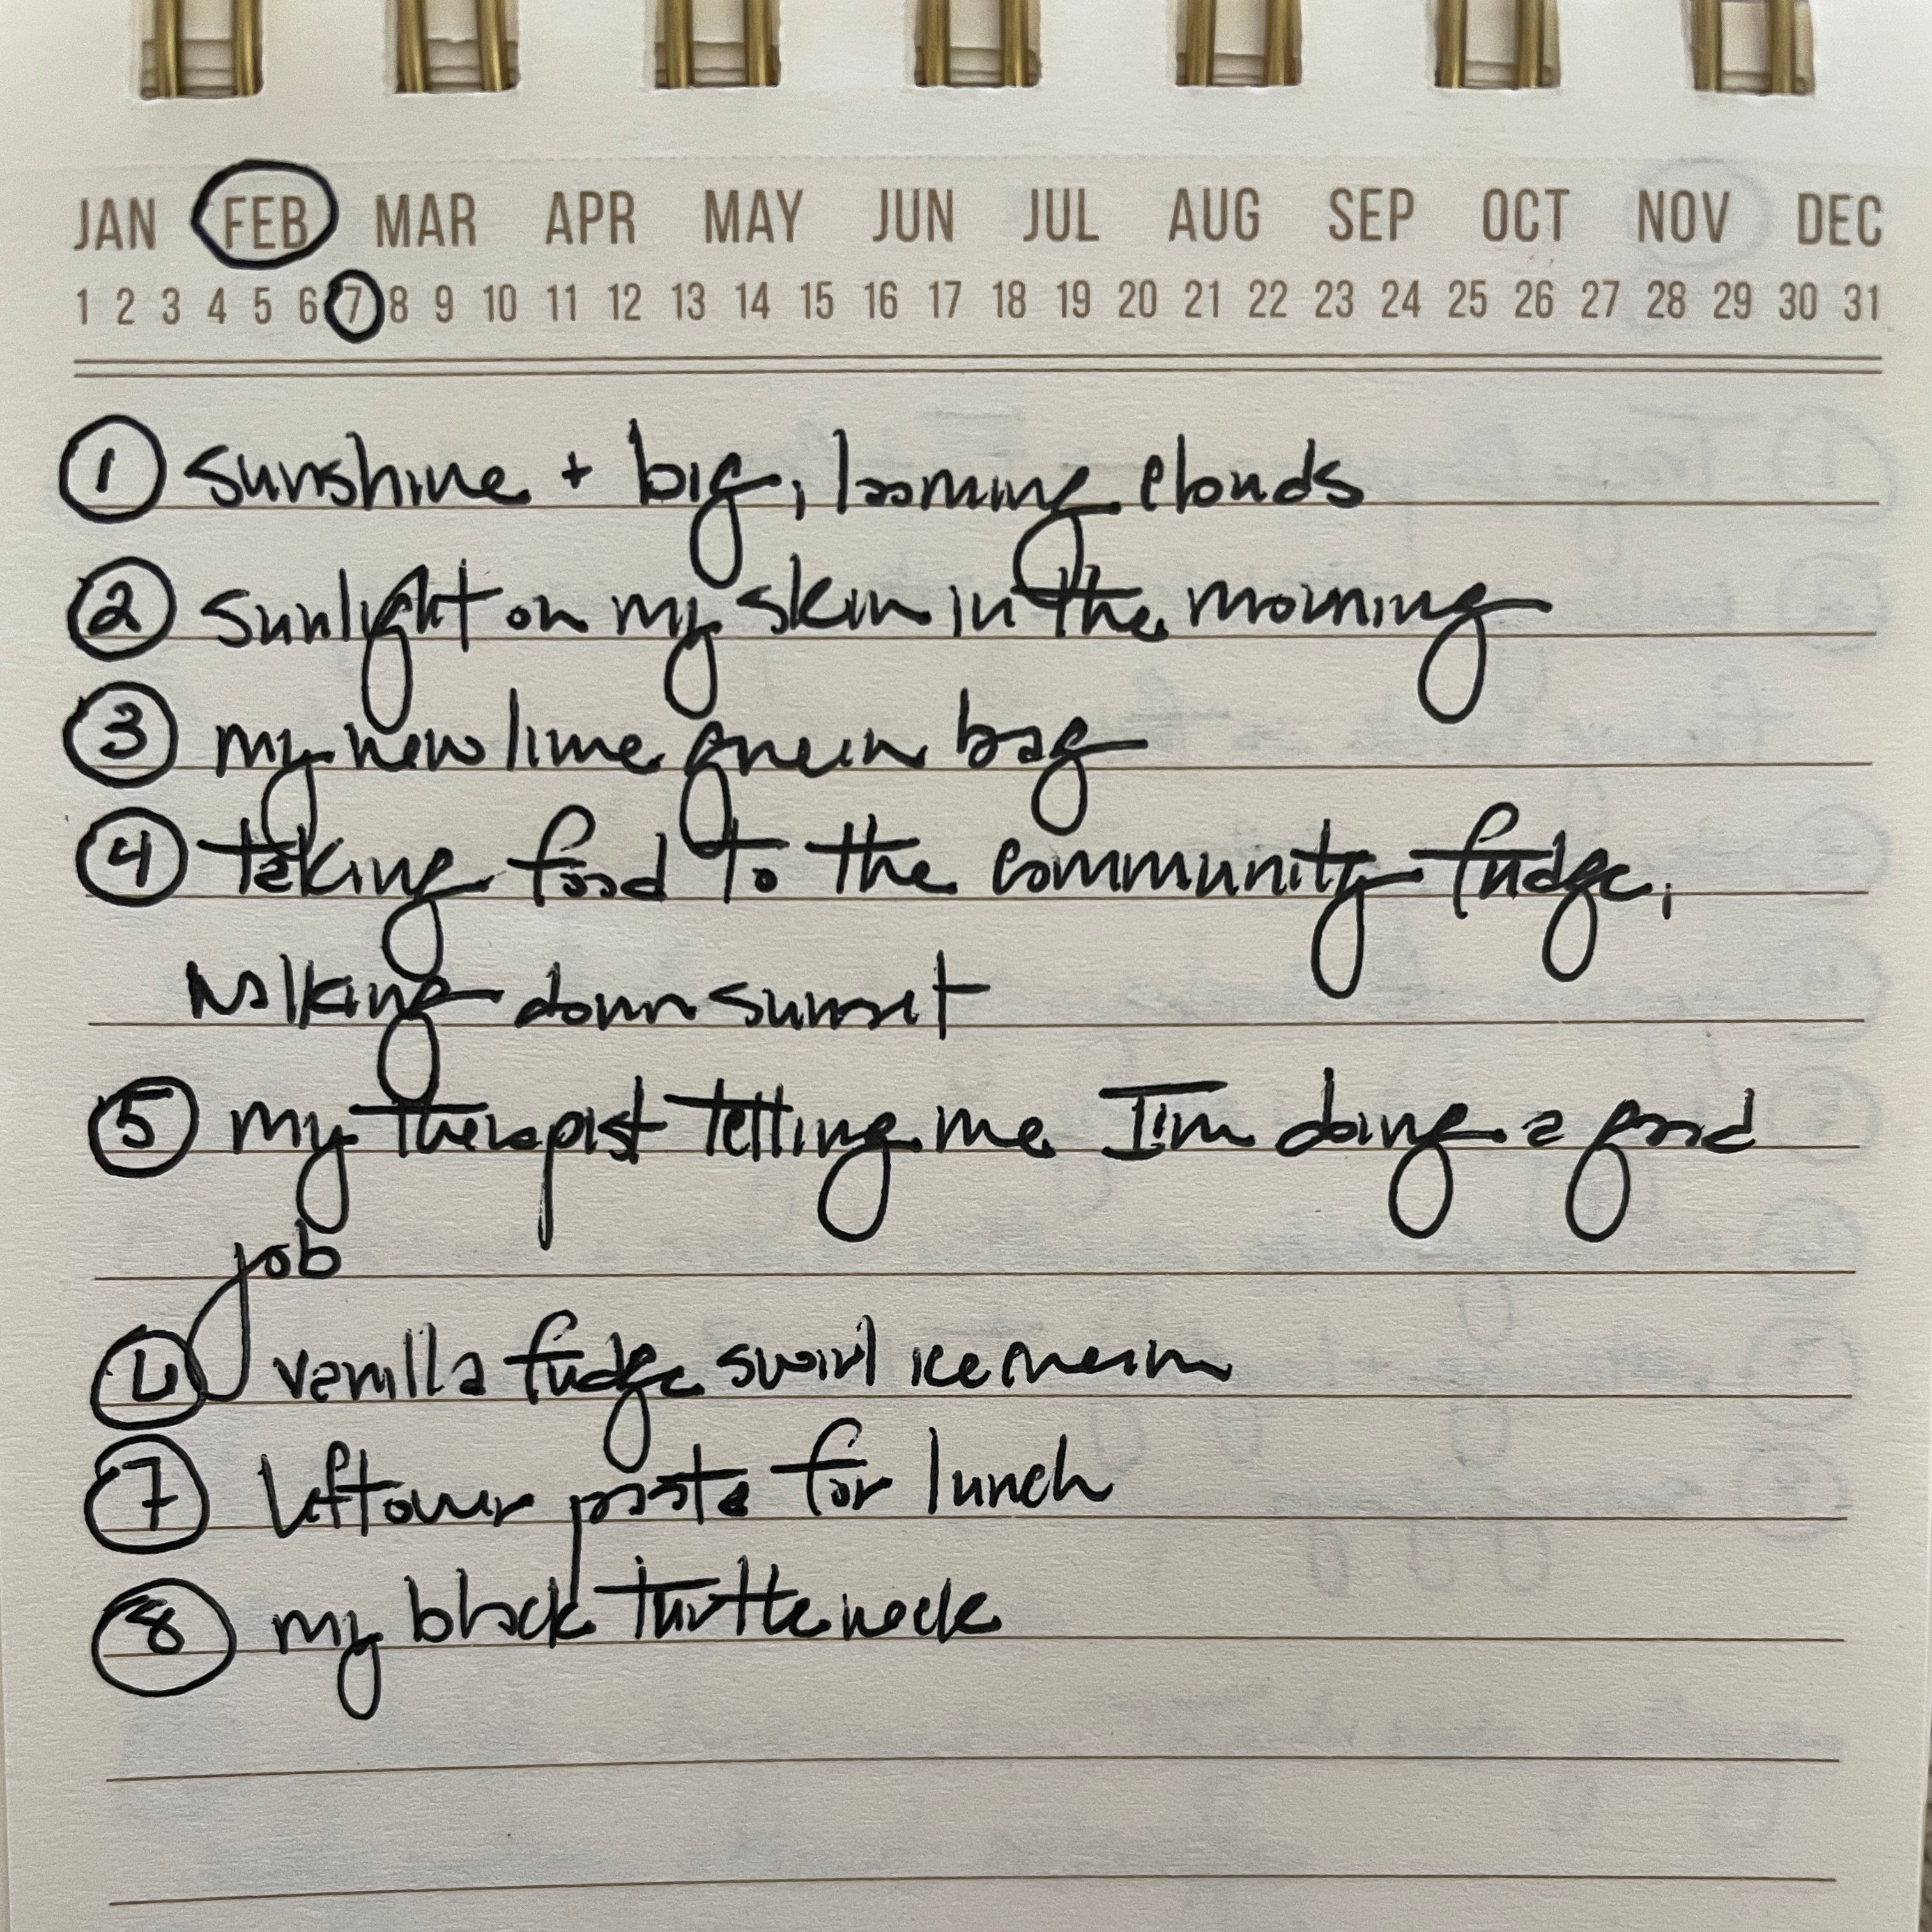 JAN FEB MAR APR MAY JUN JUL AUG SEP OCT NOV DEC
1 2 3 4 5 6 7 8 9 10 11 12 13 14 15 16 17 18 19 20 21 22 23 24 25 26 27 28 29 30 31
1 sunshine + big, looming clouds
2 sunlight on my skin in the morning
3 my new lime green bag
4 taking food to the community fudge,
walking down sunset
5 my therapist telling me I'm doing a good
job
6 vanilla fudge swirl ice cream
7 leftover pasta for lunch
8 my black turtleneck